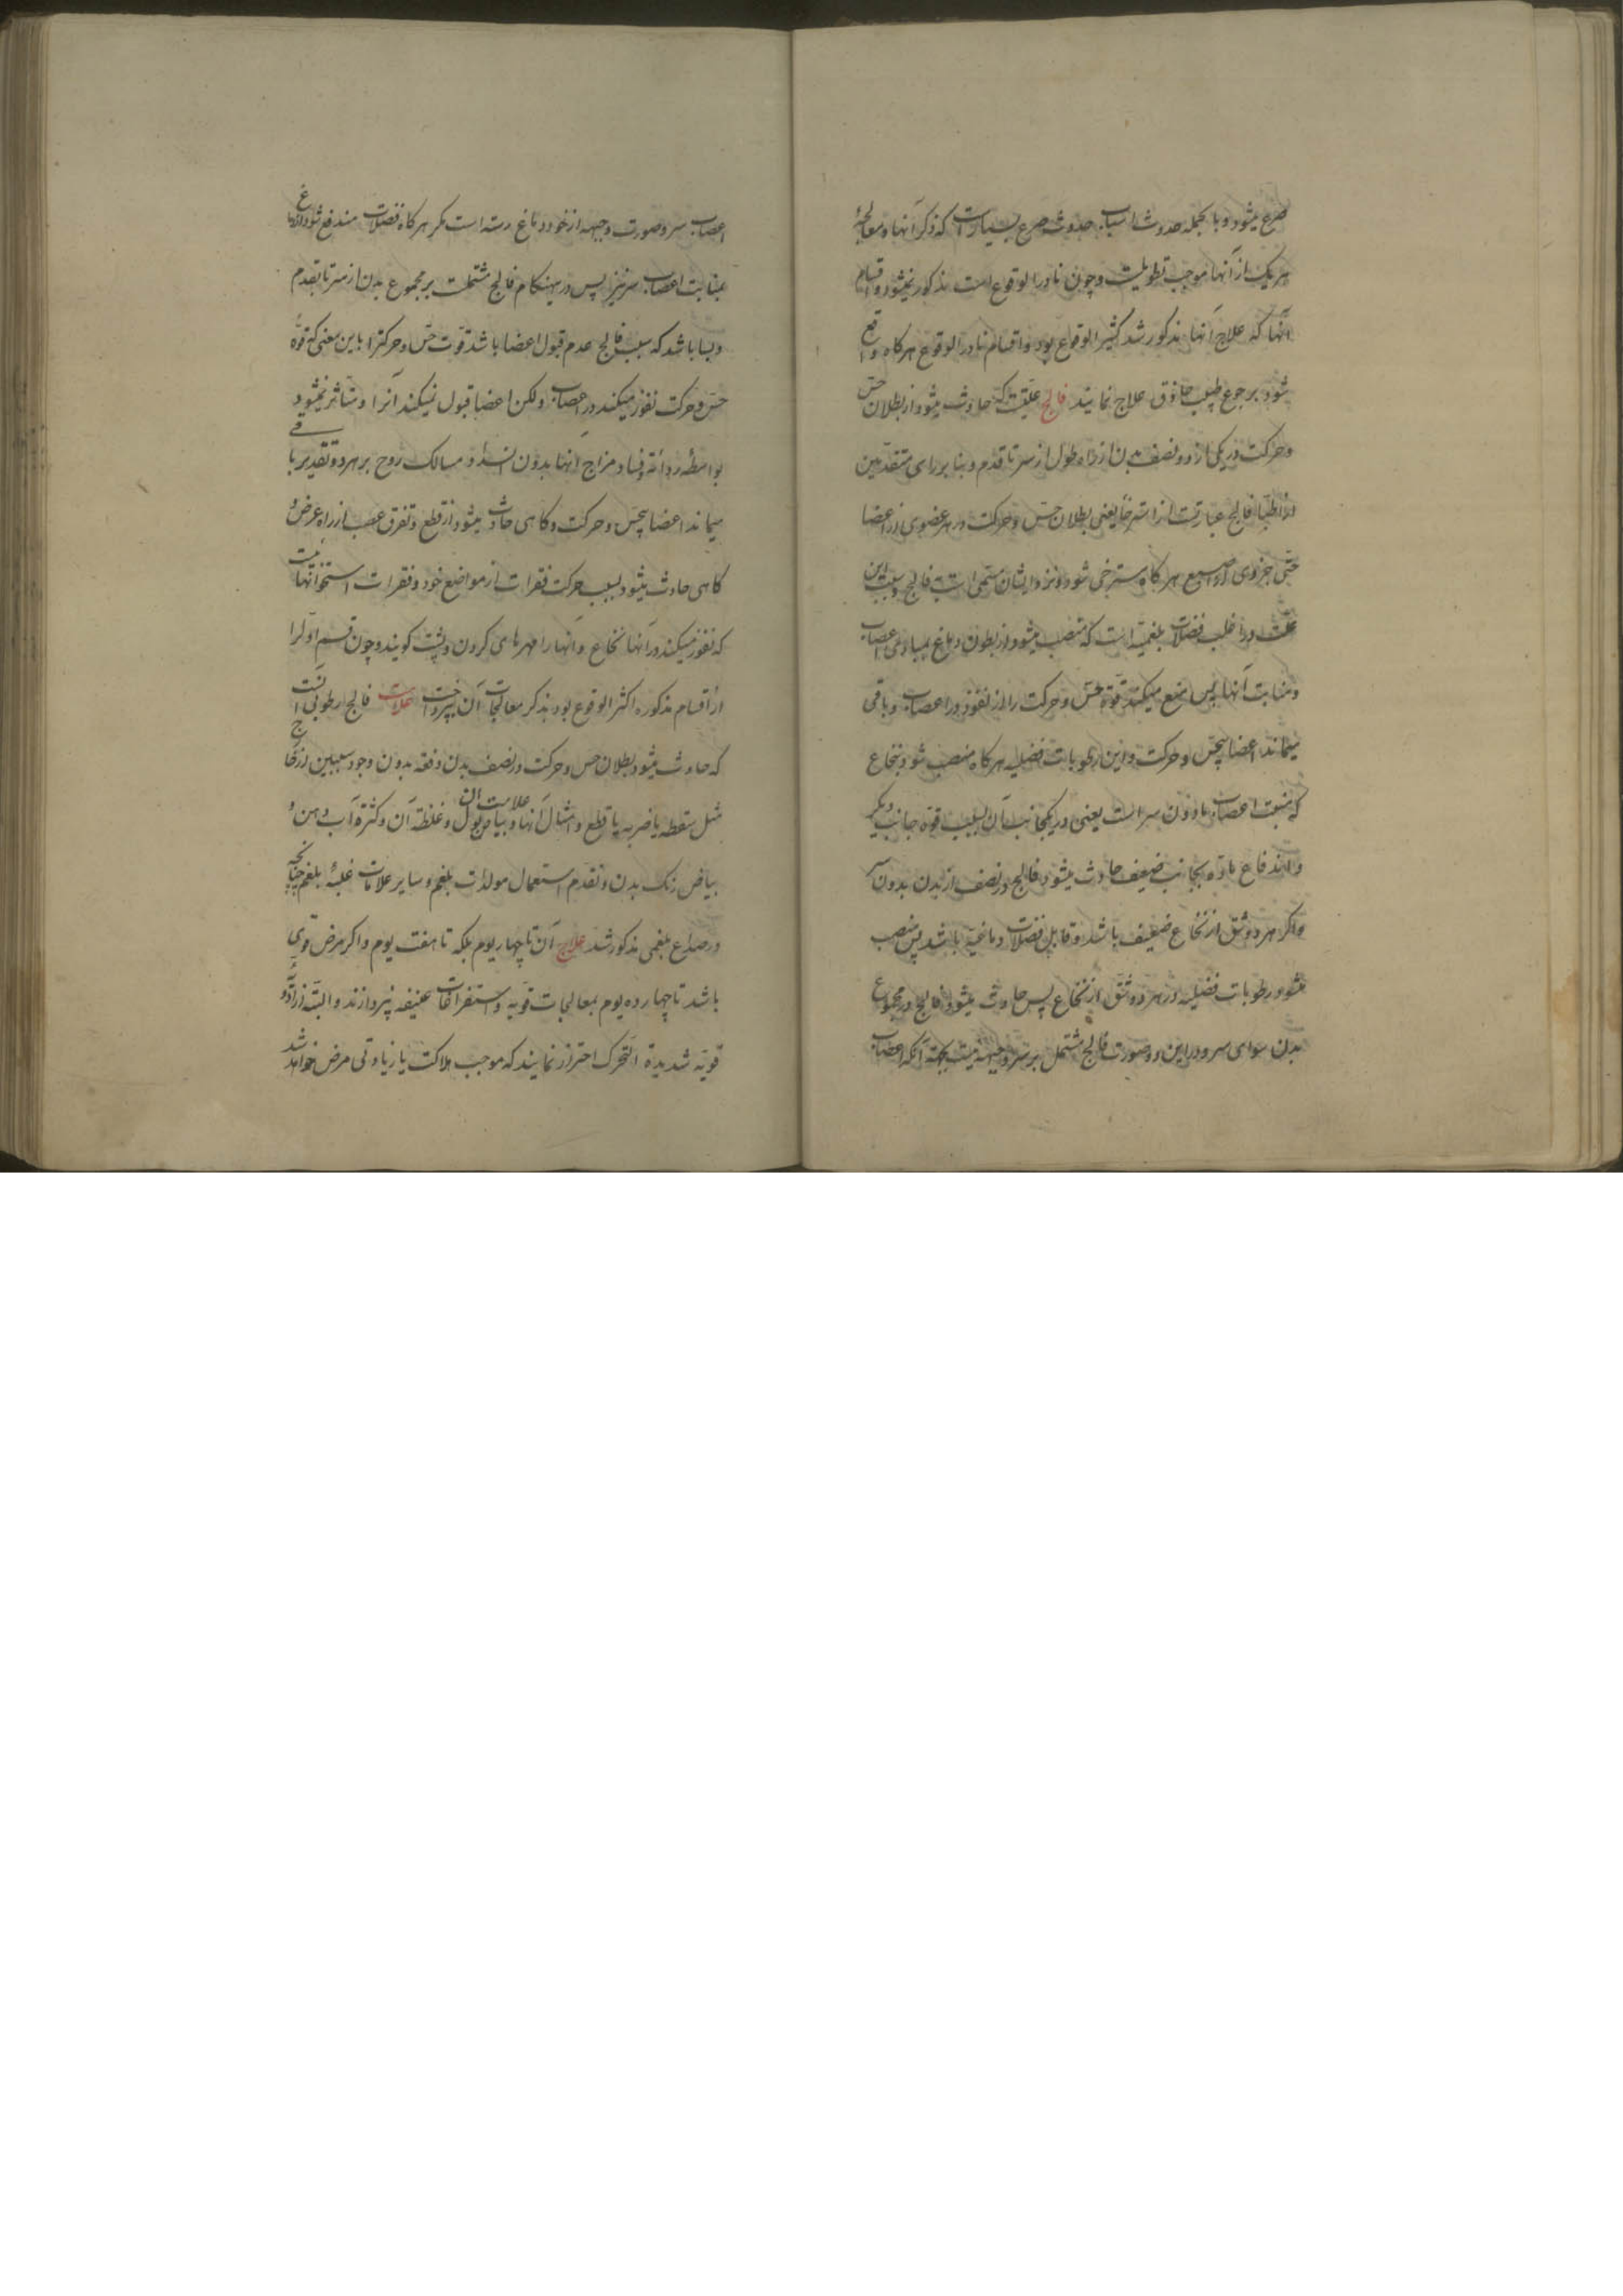 صرع میشود و بالجمله حدوث اسباب حدوث صرع بسیارست که ذکر آنها و معالجهٔ
هر یک از آنها موجب تطویلست و چون نادر الوقوع است مذکور نمیشود و اقسام
آنها که علاج آنها مذکور شد کثیر الوقوع بود و اقسام نادر الوقوع هرکاه واقع
شود برجوع طبیب حاذق علاج نمایند فالج علتیست که حادث میشود از بطلان حس
و حرکت در یکی از دو نصف بدن از راه طول از سر تا قدم و بنا بر رای متقدمین
از اطبا فالج عبارتست از استرخا یعنی بطلان حس و حرکت در هر عضوی از اعضا
حتی جزوی از اصبع هرکاه مسترخی شود و نزد ایشان مسمی است به فالج و سبب این
علت در اغلب فضلات بلغمیه است که منصب میشود از بطون دماغ بمبادی اعصاب
و منابت آنها پس منع میکند قوهٔ حس و حرکت را از نفوذ در اعصاب و باقی
میماند اعضا بیحس و حرکت و این رطوبات فضلیه هرکاه منصب شود بنخاع
که منبت اعصاب مادون سر است یعنی در یکجانب آن بسبب قوهٔ جانب دیکر
و اندفاع ماده بجانب ضعیف حادث میشود فالج در نصف از بدن بدون سر
و اکر هر دو شق از نخاع ضعیف باشد و قابل فضلات دماغیه باشد پس منصب
میشود رطوبات فضلیه در هر دو شق از نخاع پس حادث میشود فالج در مجموع
بدن سوای سر و در این دو صورت فالج مشتمل بر سر و جبهه نیست بجهة آنکه اعصاب
اعصاب سر و صورت و جبهه از خود دماغ رسته است مکر هرکاه فضلات مندفع شود از دماغ
بمنابت اعصاب سر نیز پس در اینهنکام فالج مشتملست بر مجموع بدن از سر تا بقدم
و بسا باشد که سبب فالج عدم قبول اعضا باشد قوت حس و حرکترا باین معنی که قوهٔ
حس و حرکت نفوذ میکند در اعصاب ولکن اعضا قبول نمیکند آنرا و متأثر نمیشود
بواسطهٔ ردائة و فساد مزاج آنها بدون انسداد مسالک روح بر هر دو تقدیر باقی
میماند اعضا بیحس و حرکت و کاهی حادث میشود از قطع و تفرق عصب از راه عرض و
کاهی حادث میشود بسبب حرکت فقرات از مواضع خود و فقرات استخوانهائیست
که نفوذ میکند در آنها نخاع و آنها را مهرهای کردن و پشت کویند و چون قسم اول را
از اقسام مذکوره اکثر الوقوع بود بذکر معالجات آن پرداخت علامت فالج رطوبی آنست
که حادث میشود بطلان حس و حرکت در نصف بدن دفعة بدون وجود سببین از خارج
مثل سقطه یا ضربه یا قطع و امثال آنها و علامت آن بیاض بول و غلظة آن و کثرة آب دهن و
بیاض رنک بدن و تقدم استعمال مولدات بلغم و سایر علامات غلبهٔ بلغم چنانچه
در صداع بلغمی مذکور شد علاج آن تا چهار یوم بلکه تا هفت یوم و اکر مرض قوی
باشد تا چهارده یوم بمعالجات قویه و استفراغات عنیفه نپردازند و البته از ادویهٔ
قویه شدیدة التحرک احتراز نمایند که موجب هلاکت یا زیادتی مرض خواهد شد